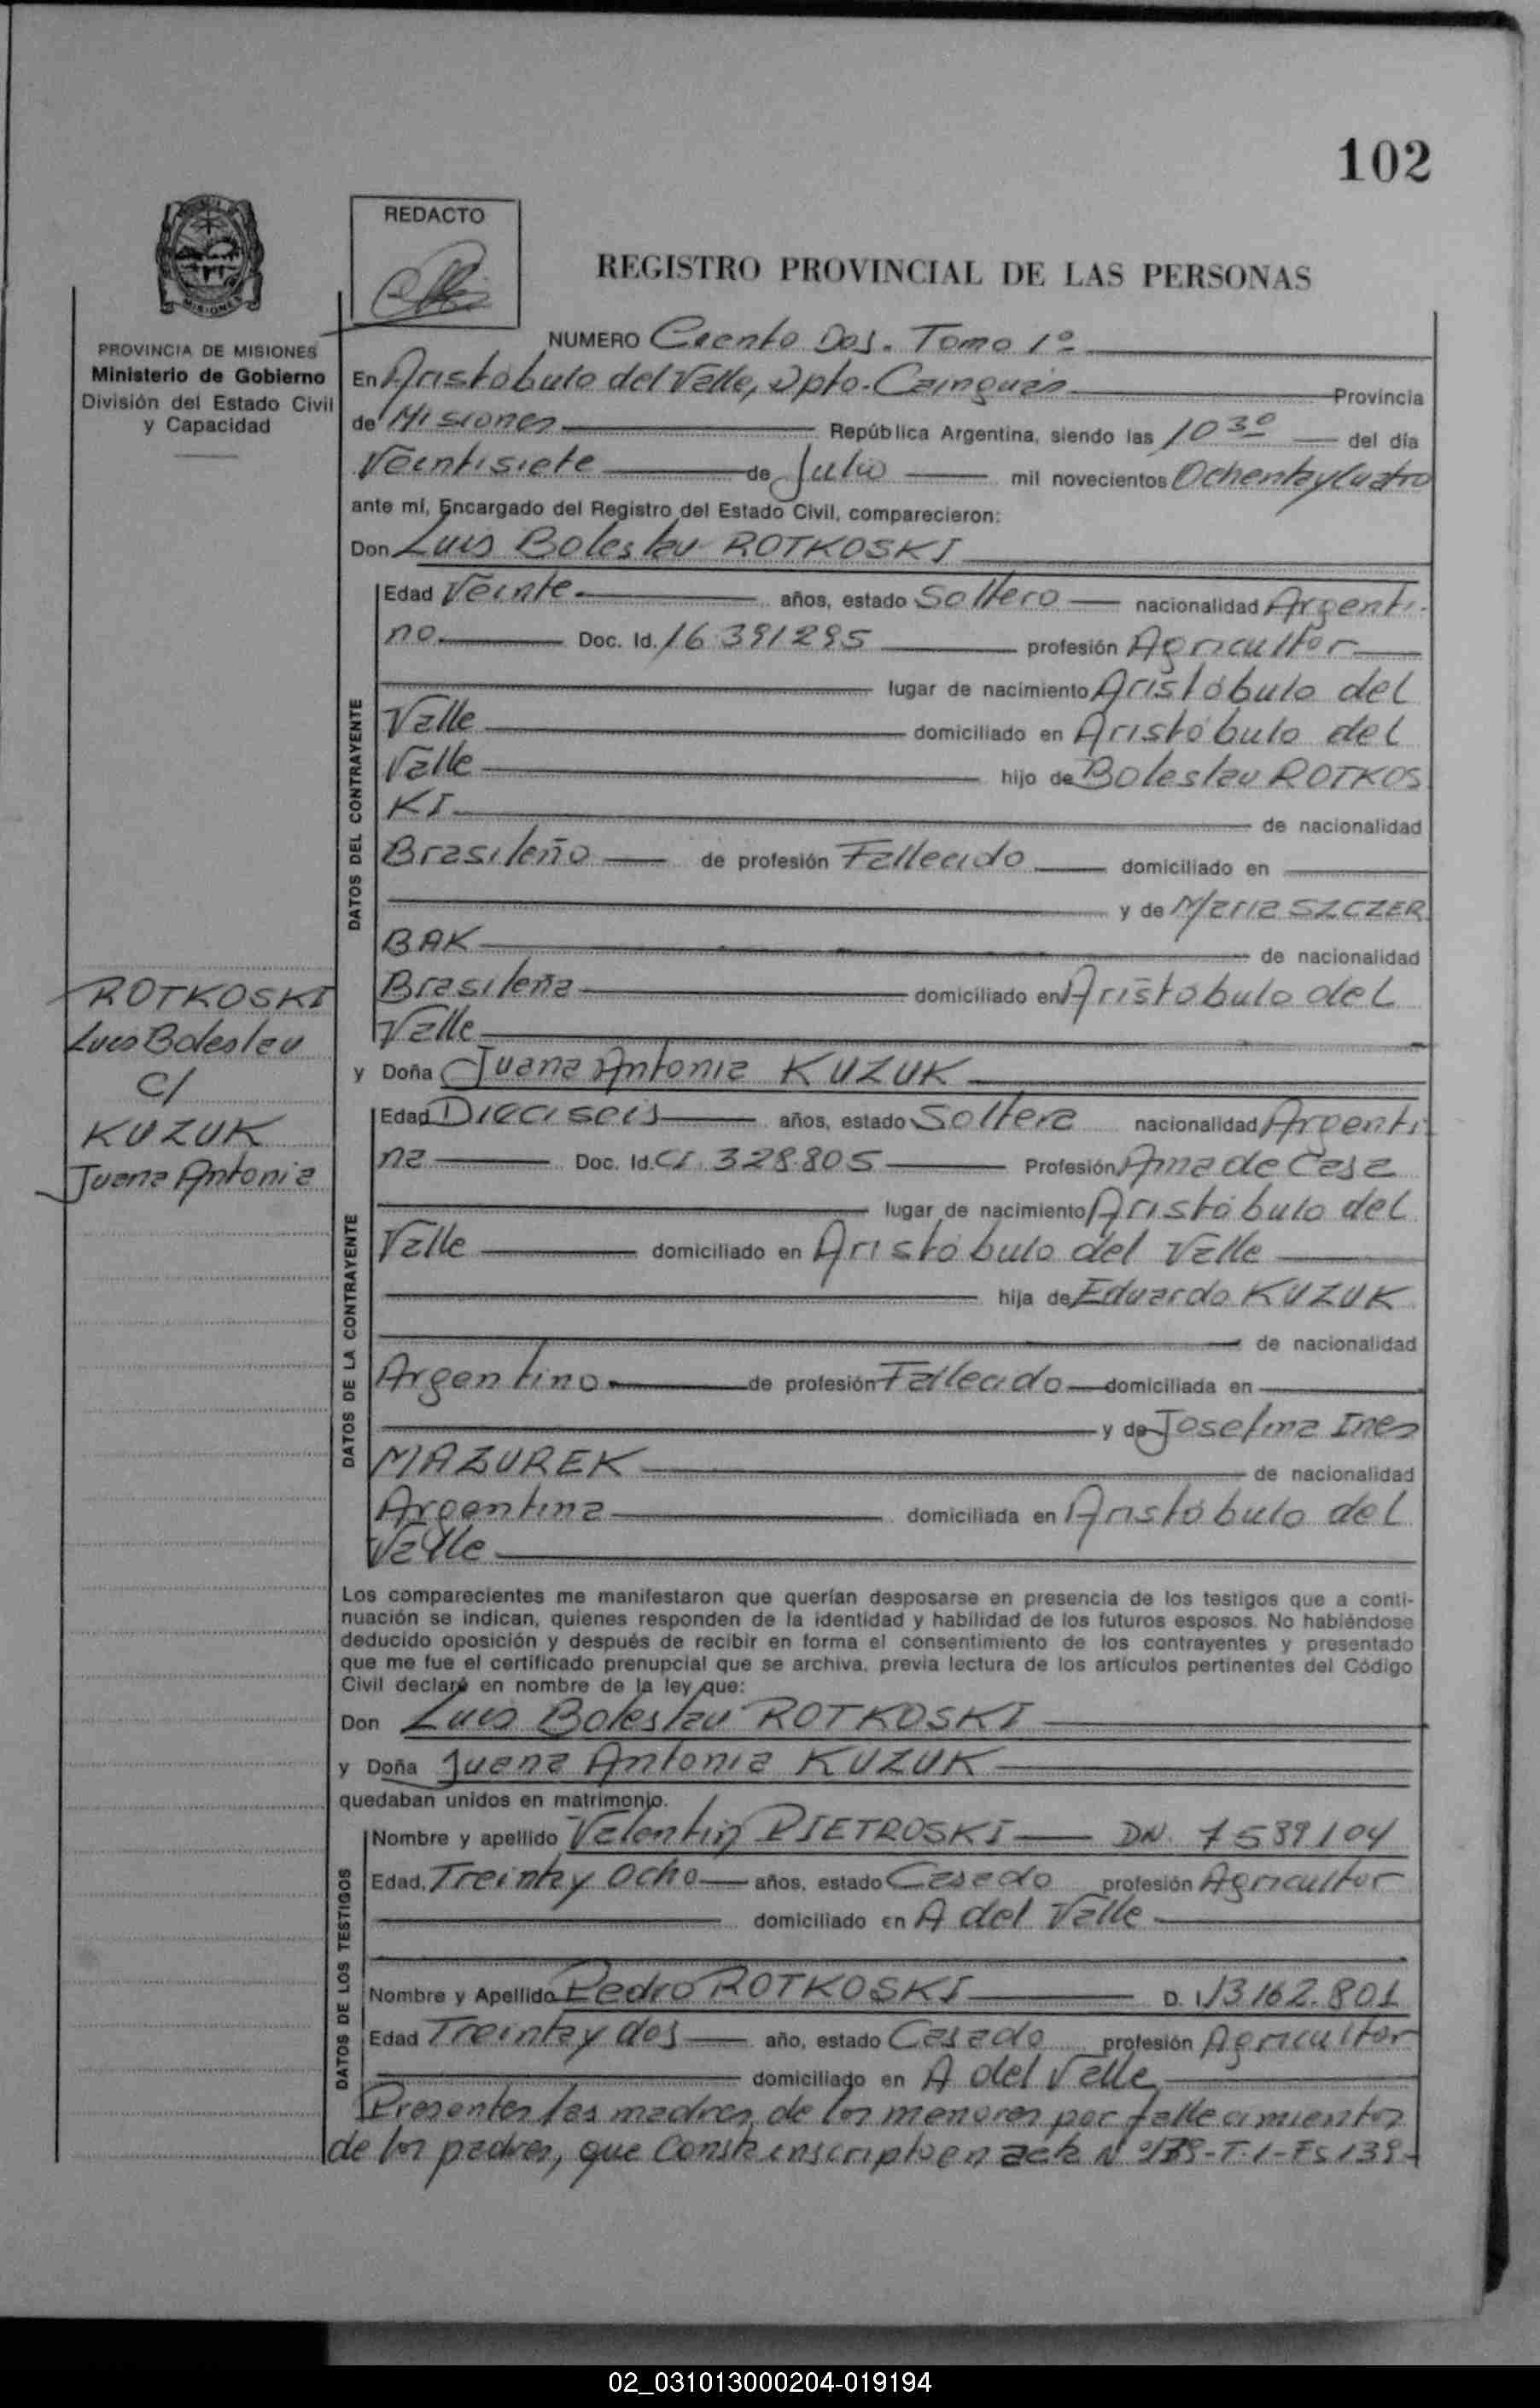 102
REDACTO
REGISTRO PROVINCIAL DE LAS PERSONAS
MISIONES
PROVINCIA DE MISIONES
Ministerio de Gobierno
División del Estado Civil
y Capacidad
NUMERO Ciento Dos. Tomo 1º
En Aristóbulo del Valle, Dpto. Cainguás Provincia
de Misiones República Argentina, siendo las 10 30 del día
Veintisiete de Julio mil novecientos Ochenta y Cuatro
ante mí, Encargado del Registro del Estado Civil, comparecieron:
Don Luis Boleslau ROTKOSKI
DATOS DEL CONTRAYENTE
Edad Veinte años, estado Soltero nacionalidad Argenti-
no Doc. Id. 16.391295 profesión Agricultor
lugar de nacimiento Aristóbulo del
Valle domiciliado en Aristóbulo del
Valle hijo de Boleslau ROTKOS
KI de nacionalidad
Brasileño de profesión Fallecido domiciliado en
y de Maria SZCZER
BAK de nacionalidad
Brasileña domiciliado en Aristóbulo del
Valle
ROTKOSKI
Luis Boleslau
C/
KUZUK
Juana Antonia
y Doña Juana Antonia KUZUK
DATOS DE LA CONTRAYENTE
Edad Dieciseis años, estado Soltera nacionalidad Argenti
na Doc. Id. CI. 328.805 Profesión Ama de Casa
lugar de nacimiento Aristóbulo del
Valle domiciliado en Aristóbulo del Valle
hija de Eduardo KUZUK
de nacionalidad
Argentino de profesión Fallecido domiciliada en
y de Josefina Ines
MAZUREK de nacionalidad
Argentina domiciliada en Aristóbulo del
Valle
Los comparecientes me manifestaron que querían desposarse en presencia de los testigos que a conti-
nuación se indican, quienes responden de la identidad y habilidad de los futuros esposos. No habiéndose
deducido oposición y después de recibir en forma el consentimiento de los contrayentes y presentado
que me fue el certificado prenupcial que se archiva, previa lectura de los artículos pertinentes del Código
Civil declaré en nombre de la ley que:
Don Luis Boleslau ROTKOSKI
y Doña Juana Antonia KUZUK
quedaban unidos en matrimonio.
DATOS DE LOS TESTIGOS
Nombre y apellido Valentin PIETROSKI DN. 7539104
Edad, Treinta y Ocho años, estado Casado profesión Agricultor
domiciliado en A del Valle
Nombre y Apellido Pedro ROTKOSKI D. I. 13.162.801
Edad Treinta y dos año, estado Casado profesión Agricultor
domiciliado en A del Valle
Presentes las madres de los menores por fallecimientos
de los padres, que consta inscripto en acta Nº -T.1-Fs 139-
02_031013000204-019194